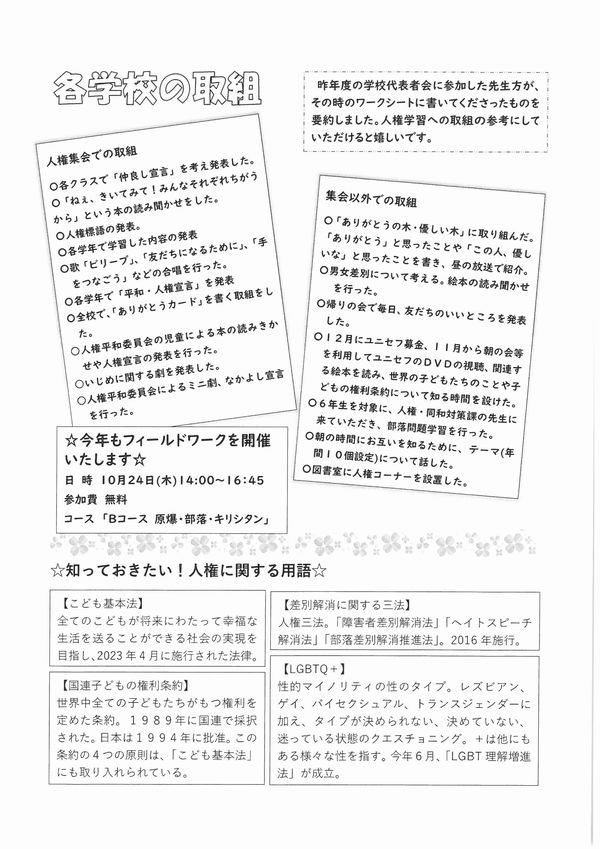 各学校の取組
昨年度の学校代表者会に参加した先生方が、
その時のワークシートに書いてくださったものを
要約しました。人権学習への取組の参考にして
いただけると嬉しいです。
人権集会での取組
○各クラスで「仲良し宣言」を考え発表した。
○「ねぇ、きいてみて！みんなそれぞれちがう
から」という本の読み聞かせをした。
○人権標語の発表。
○各学年で学習した内容の発表
○歌「ビリーブ」、「友だちになるために」、「手
をつなごう」などの合唱を行った。
○各学年で「平和・人権宣言」を発表
○全校で、「ありがとうカード」を書く取組をし
た。
○人権平和委員会の児童による本の読みきか
せや人権宣言の発表を行った。
○いじめに関する劇を発表した。
○人権平和委員会によるミニ劇、なかよし宣言
を行った。
集会以外での取組
○「ありがとうの木・優しい木」に取り組んだ。
「ありがとう」と思ったことや「この人、優し
いな」と思ったことを書き、昼の放送で紹介。
○男女差別について考える。絵本の読み聞かせ
を行った。
○帰りの会で毎日、友だちのいいところを発表
した。
○１２月にユニセフ募金、１１月から朝の会等
を利用してユニセフのＤＶＤの視聴、関連す
る絵本を読み、世界の子どもたちのことや子
どもの権利条約について知る時間を設けた。
○６年生を対象に、人権・同和対策課の先生に
来ていただき、部落問題学習を行った。
○朝の時間にお互いを知るために、テーマ(年
間１０個設定)について話した。
○図書室に人権コーナーを設置した。
☆今年もフィールドワークを開催
いたします☆
日 時 10月24日(木)14:00～16:45
参加費 無料
コース 「Bコース 原爆・部落・キリシタン」
☆知っておきたい！人権に関する用語☆
【こども基本法】
全てのこどもが将来にわたって幸福な
生活を送ることができる社会の実現を
目指し、2023年4月に施行された法律。
【国連子どもの権利条約】
世界中全ての子どもたちがもつ権利を
定めた条約。１９８９年に国連で採択
された。日本は１９９４年に批准。この
条約の４つの原則は、「こども基本法」
にも取り入れられている。
【差別解消に関する三法】
人権三法。「障害者差別解消法」「ヘイトスピーチ
解消法」「部落差別解消推進法」。2016年施行。
【LGBTQ＋】
性的マイノリティの性のタイプ。レズビアン、
ゲイ、バイセクシュアル、トランスジェンダーに
加え、タイプが決められない、決めていない、
迷っている状態のクエスチョニング。＋は他にも
ある様々な性を指す。今年６月、「LGBT理解増進
法」が成立。